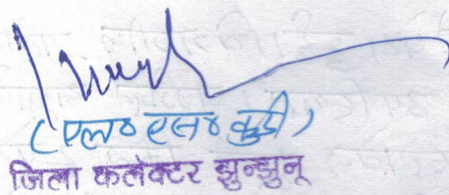 (एल० एस० कुड़ी)
जिला कलेक्टर झुन्झुनू